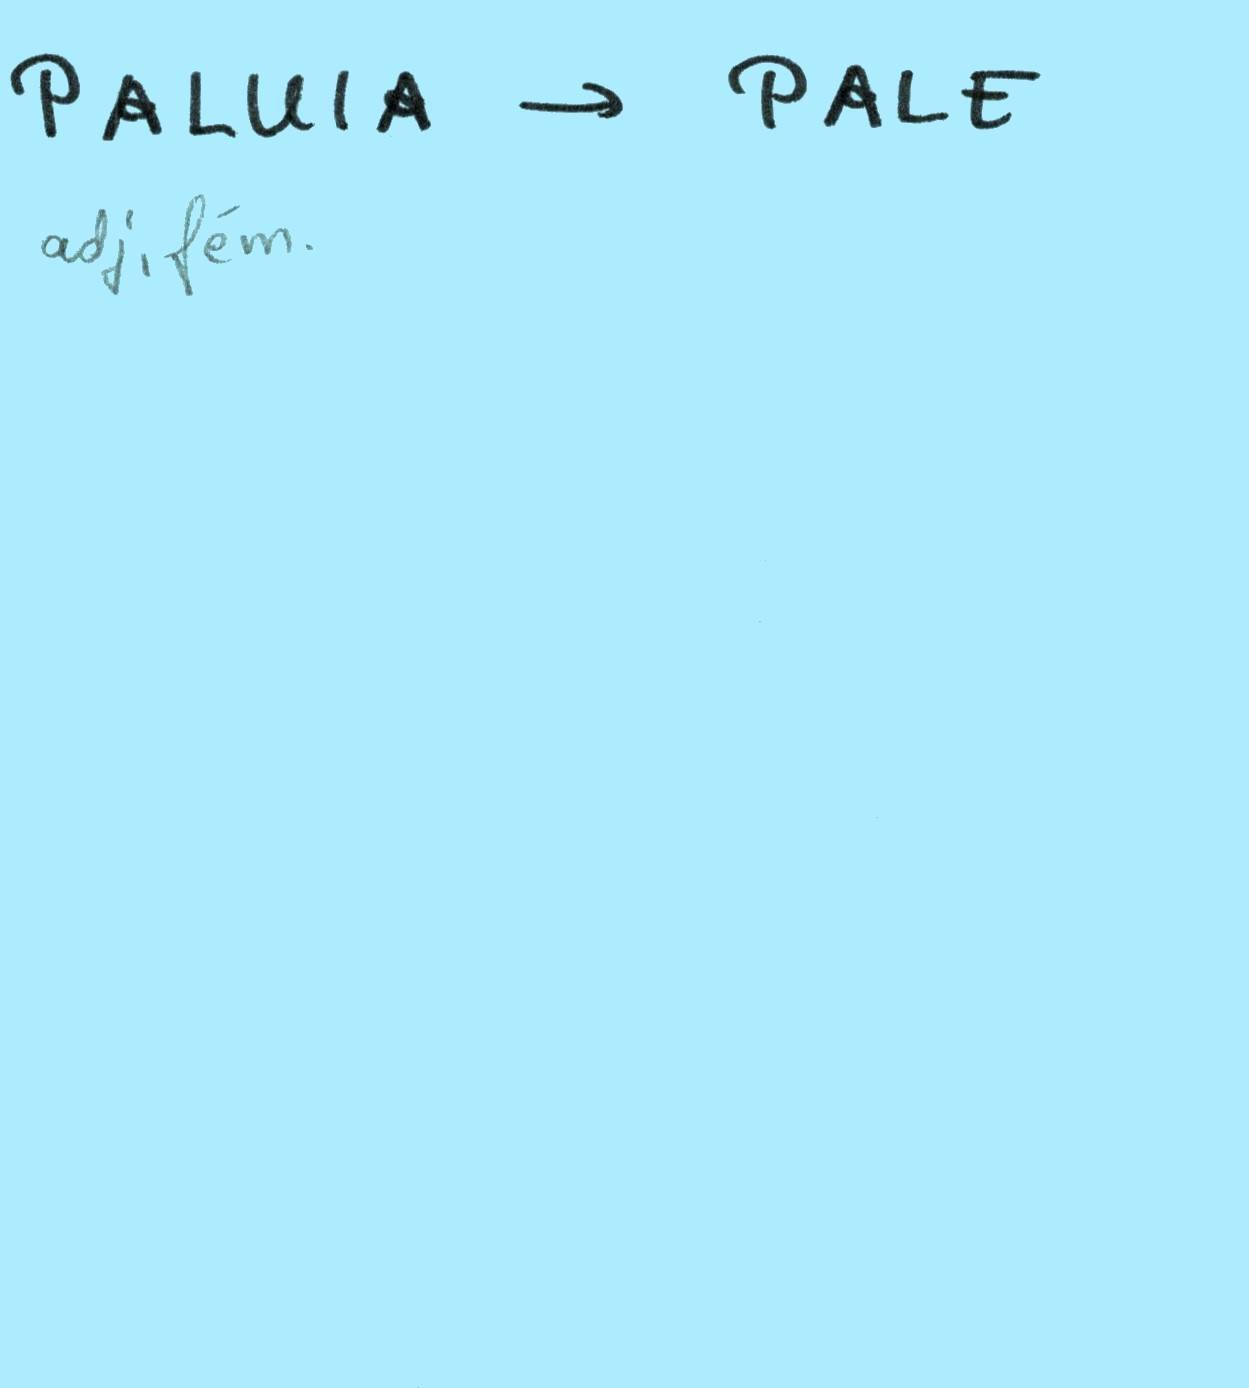 PALUIA → PALE
adj, fém.